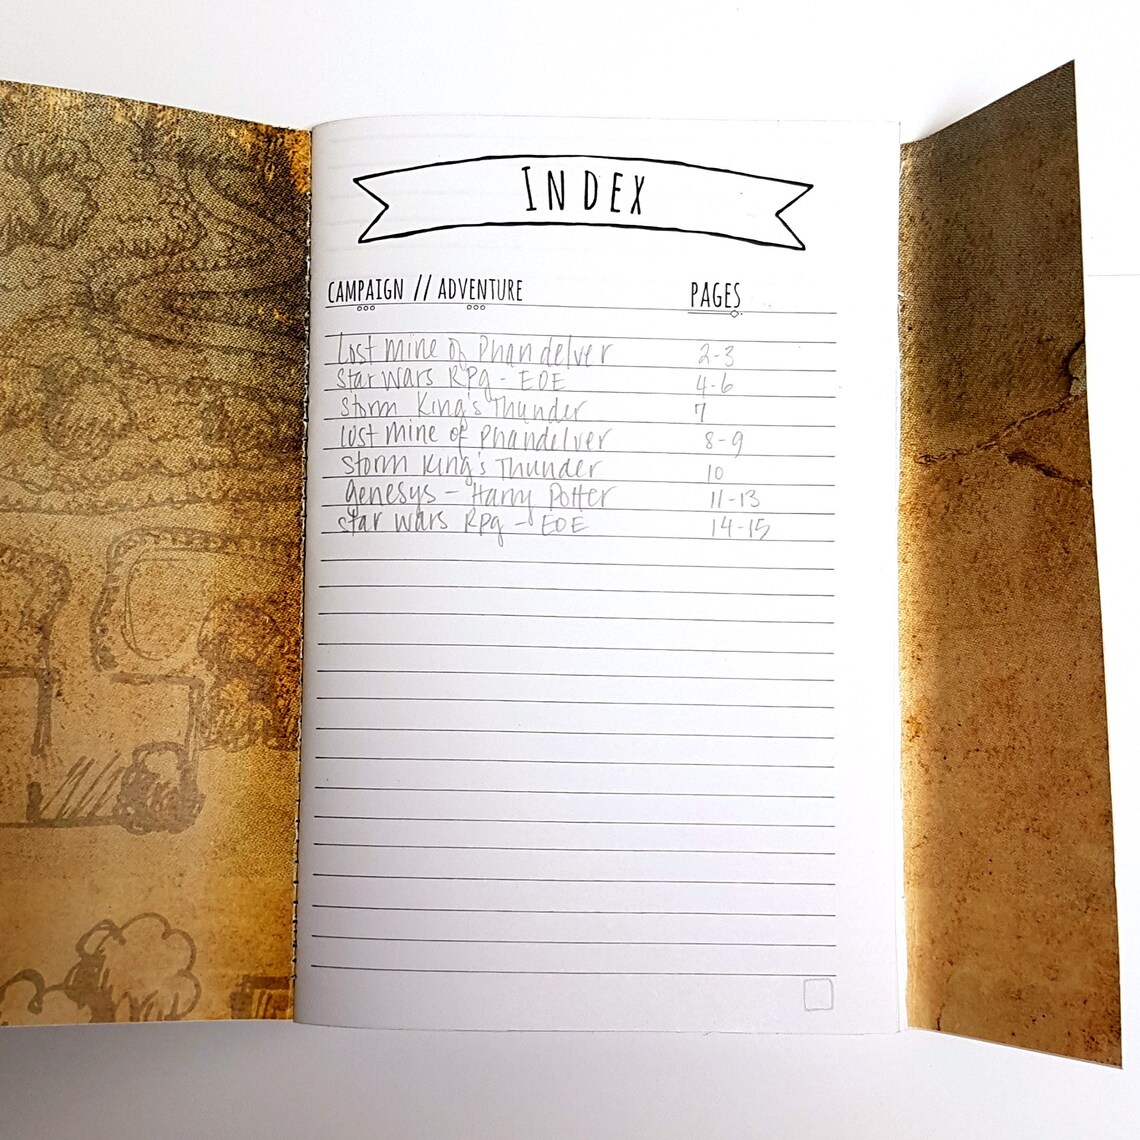 INDEX
CAMPAIGN // ADVENTURE PAGES
Lost mine of Phandelver 2-3
Star Wars RPg - EOE 4-6
Storm King's Thunder 7
Lost mine of Phandelver 8-9
Storm King's Thunder 10
Genesys - Harry Potter 11-13
Star Wars RPg - EOE 14-15